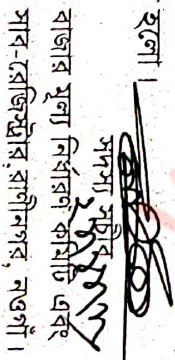 হলো।
সদস্য সচিব
বাজার মূল্য নির্ধারণ কমিটি এবং
সাব-রেজিস্ট্রার, রাণীনগর, নওগাঁ।